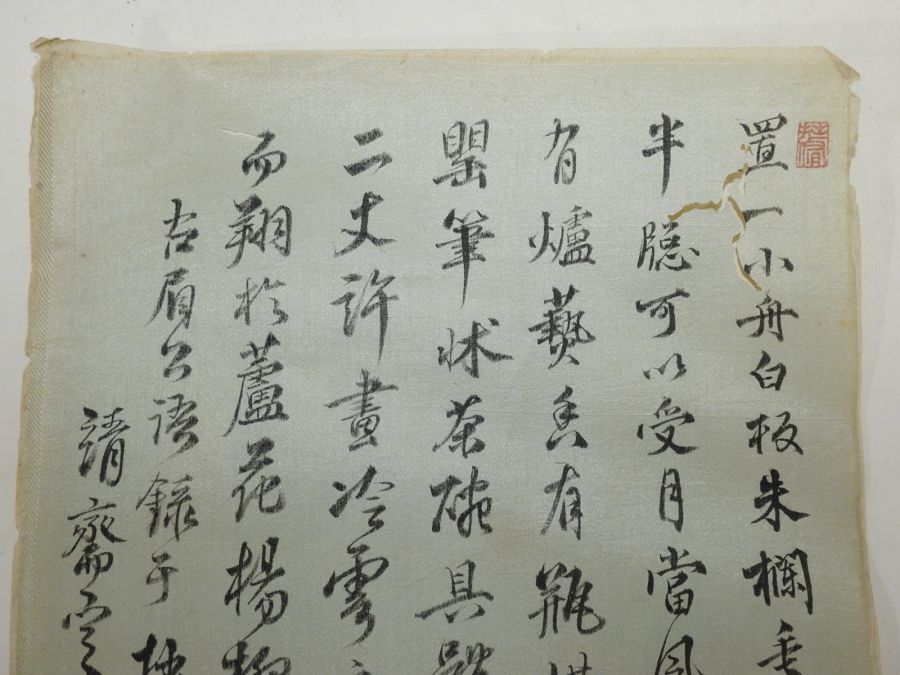 置一小舟白板朱欄垂
半隱可以受月當風
有爐爇香有瓶
罌筆牀茶碗具
二丈許畫冷雲
而翔於蘆花楊柳
右眉公語錄于
請齋